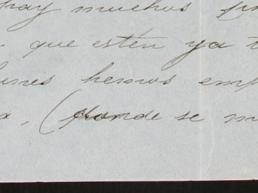 hay muchos
que estén ya
lunes hemos emp
(donde se m